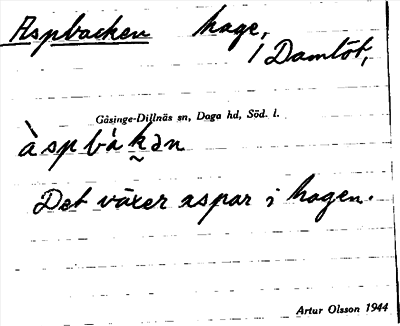 Aspbacken hage, Damtöt,
Gåsinge-Dillnäs sn, Daga hd, Söd. l.
àspbákən
Det växer aspar i hagen.
Artur Olsson 1944